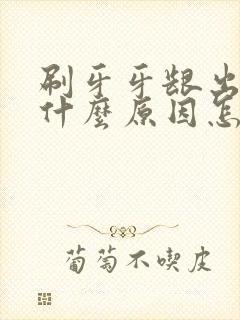 刷牙牙龈出
什麼原因怎
葡萄不喫皮